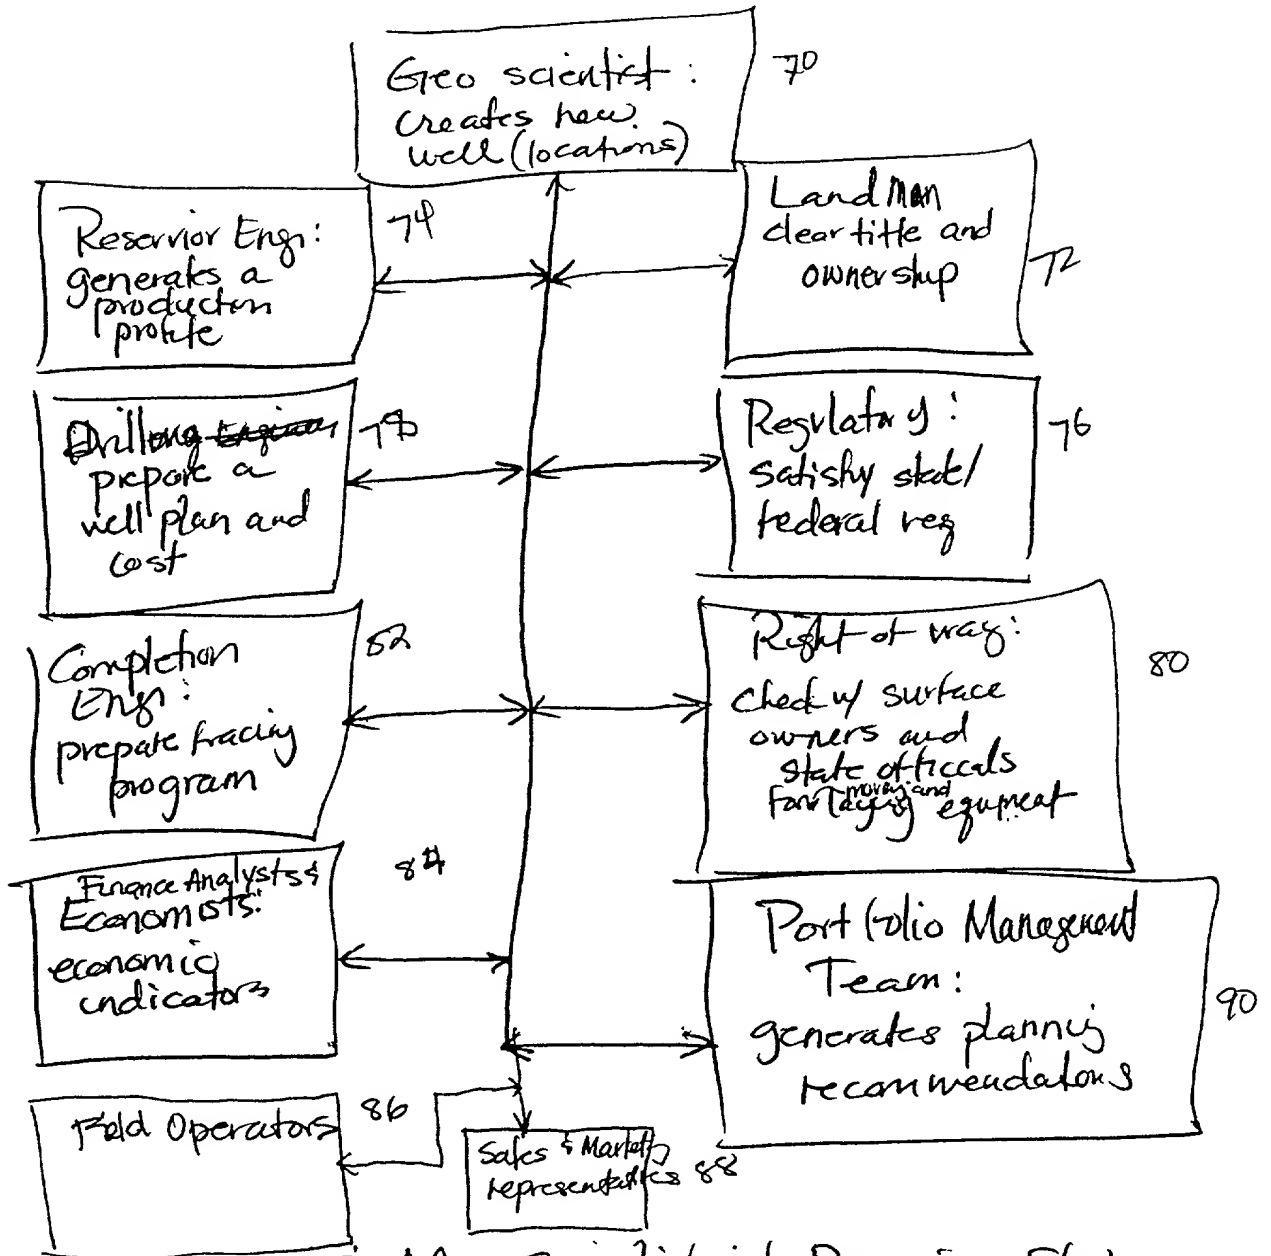 Geo scientist:
creates new
well (locations)
70
Reservior Engr:
generates a
production
profile
74
Landman
clear title and
ownership
72
Drilling Engineer
prepare a
well plan and
cost
78
Regulatory:
satisfy state/
federal req
76
Completion
Engr:
prepare fracing
program
82
Right of way:
check w/ surface
owners and
state officals
for moving and
laying equpment
80
Finance Analysts &
Economists:
economic
indicators
84
Portfolio Management
Team:
generates planning
recommendations
90
Field Operators
86
Sales & Marketing
representatives
88